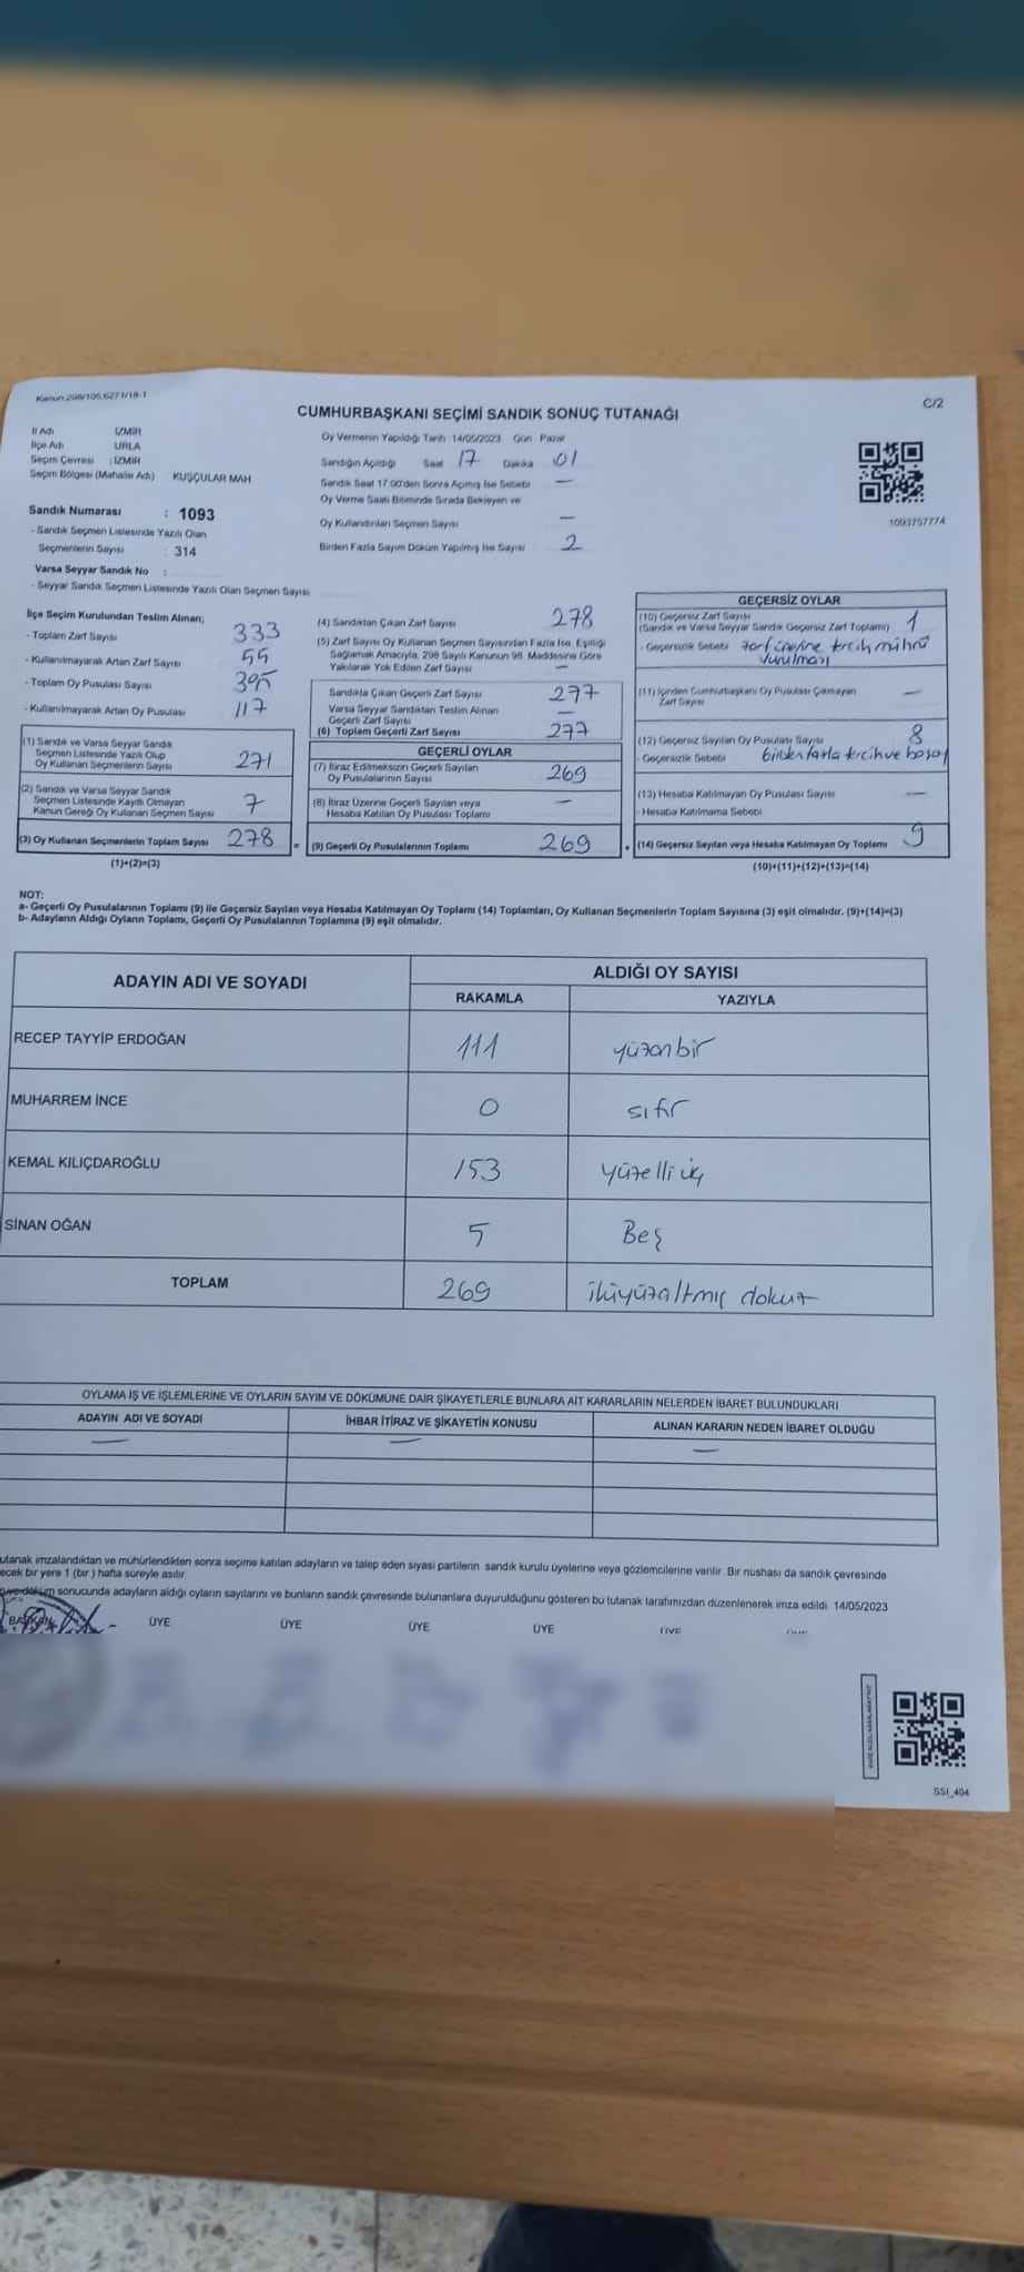 Kanun:298/105,6271/18-1
C/2
CUMHURBAŞKANI SEÇİMİ SANDIK SONUÇ TUTANAĞI
İl Adı İZMİR
İlçe Adı URLA
Seçim Çevresi : İZMİR
Seçim Bölgesi (Mahalle Adı) KUŞÇULAR MAH
Sandık Numarası : 1093
- Sandık Seçmen Listesinde Yazılı Olan
Seçmenlerin Sayısı : 314
Varsa Seyyar Sandık No :
- Seyyar Sandık Seçmen Listesinde Yazılı Olan Seçmen Sayısı
Oy Vermenin Yapıldığı Tarih 14/05/2023 Gün Pazar
Sandığın Açıldığı Saat 17 Dakika 01
Sandık Saat 17.00'den Sonra Açılmış İse Sebebi —
Oy Verme Saati Bitiminde Sırada Bekleyen ve
Oy Kullandırılan Seçmen Sayısı —
Birden Fazla Sayım Döküm Yapılmış İse Sayısı 2
1093757774
İlçe Seçim Kurulundan Teslim Alınan;
- Toplam Zarf Sayısı 333
- Kullanılmayarak Artan Zarf Sayısı 55
- Toplam Oy Pusulası Sayısı 395
- Kullanılmayarak Artan Oy Pusulası 117
(1) Sandık ve Varsa Seyyar Sandık
Seçmen Listesinde Yazılı Olup
Oy Kullanan Seçmenlerin Sayısı 271
(2) Sandık ve Varsa Seyyar Sandık
Seçmen Listesinde Kayıtlı Olmayan
Kanun Gereği Oy Kullanan Seçmen Sayısı 7
(3) Oy Kullanan Seçmenlerin Toplam Sayısı 278
(1)+(2)=(3)
(4) Sandıktan Çıkan Zarf Sayısı 278
(5) Zarf Sayısı Oy Kullanan Seçmen Sayısından Fazla İse, Eşitliği
Sağlamak Amacıyla, 298 Sayılı Kanunun 98. Maddesine Göre
Yakılarak Yok Edilen Zarf Sayısı —
Sandıkta Çıkan Geçerli Zarf Sayısı 277
Varsa Seyyar Sandıktan Teslim Alınan
Geçerli Zarf Sayısı —
(6) Toplam Geçerli Zarf Sayısı 277
GEÇERLİ OYLAR
(7) İtiraz Edilmeksizin Geçerli Sayılan
Oy Pusulalarının Sayısı 269
(8) İtiraz Üzerine Geçerli Sayılan veya
Hesaba Katılan Oy Pusulası Toplamı —
= (9) Geçerli Oy Pusulalarının Toplamı 269
GEÇERSİZ OYLAR
(10) Geçersiz Zarf Sayısı
(Sandık ve Varsa Seyyar Sandık Geçersiz Zarf Toplamı) 1
- Geçersizlik Sebebi zarf üzerine tercih mührü
vurulması
(11) İçinden Cumhurbaşkanı Oy Pusulası Çıkmayan
Zarf Sayısı —
(12) Geçersiz Sayılan Oy Pusulası Sayısı 8
- Geçersizlik Sebebi birden fazla tercih ve boş oy
(13) Hesaba Katılmayan Oy Pusulası Sayısı —
- Hesaba Katılmama Sebebi
+ (14) Geçersiz Sayılan veya Hesaba Katılmayan Oy Toplamı 9
(10)+(11)+(12)+(13)=(14)
NOT:
a- Geçerli Oy Pusulalarının Toplamı (9) ile Geçersiz Sayılan veya Hesaba Katılmayan Oy Toplamı (14) Toplamları, Oy Kullanan Seçmenlerin Toplam Sayısına (3) eşit olmalıdır. (9)+(14)=(3)
b- Adayların Aldığı Oyların Toplamı, Geçerli Oy Pusulalarının Toplamına (9) eşit olmalıdır.
ADAYIN ADI VE SOYADI
ALDIĞI OY SAYISI
RAKAMLA YAZIYLA
RECEP TAYYİP ERDOĞAN 111 yüzonbir
MUHARREM İNCE 0 sıfır
KEMAL KILIÇDAROĞLU 153 yüzelli üç
SİNAN OĞAN 5 Beş
TOPLAM 269 ikiyüzaltmış dokuz
OYLAMA İŞ VE İŞLEMLERİNE VE OYLARIN SAYIM VE DÖKÜMÜNE DAİR ŞİKAYETLERLE BUNLARA AİT KARARLARIN NELERDEN İBARET BULUNDUKLARI
ADAYIN ADI VE SOYADI İHBAR İTİRAZ VE ŞİKAYETİN KONUSU ALINAN KARARIN NEDEN İBARET OLDUĞU
— — —
utanak imzalandıktan ve mühürlendikten sonra seçime katılan adayların ve talep eden siyasi partilerin sandık kurulu üyelerine veya gözlemcilerine verilir. Bir nüshası da sandık çevresinde
ecek bir yere 1 (bir ) hafta süreyle asılır.
döküm sonucunda adayların aldığı oyların sayılarını ve bunların sandık çevresinde bulunanlara duyurulduğunu gösteren bu tutanak tarafımızdan düzenlenerek imza edildi. 14/05/2023
BAŞKAN ÜYE ÜYE ÜYE ÜYE ÜYE
SSI_404